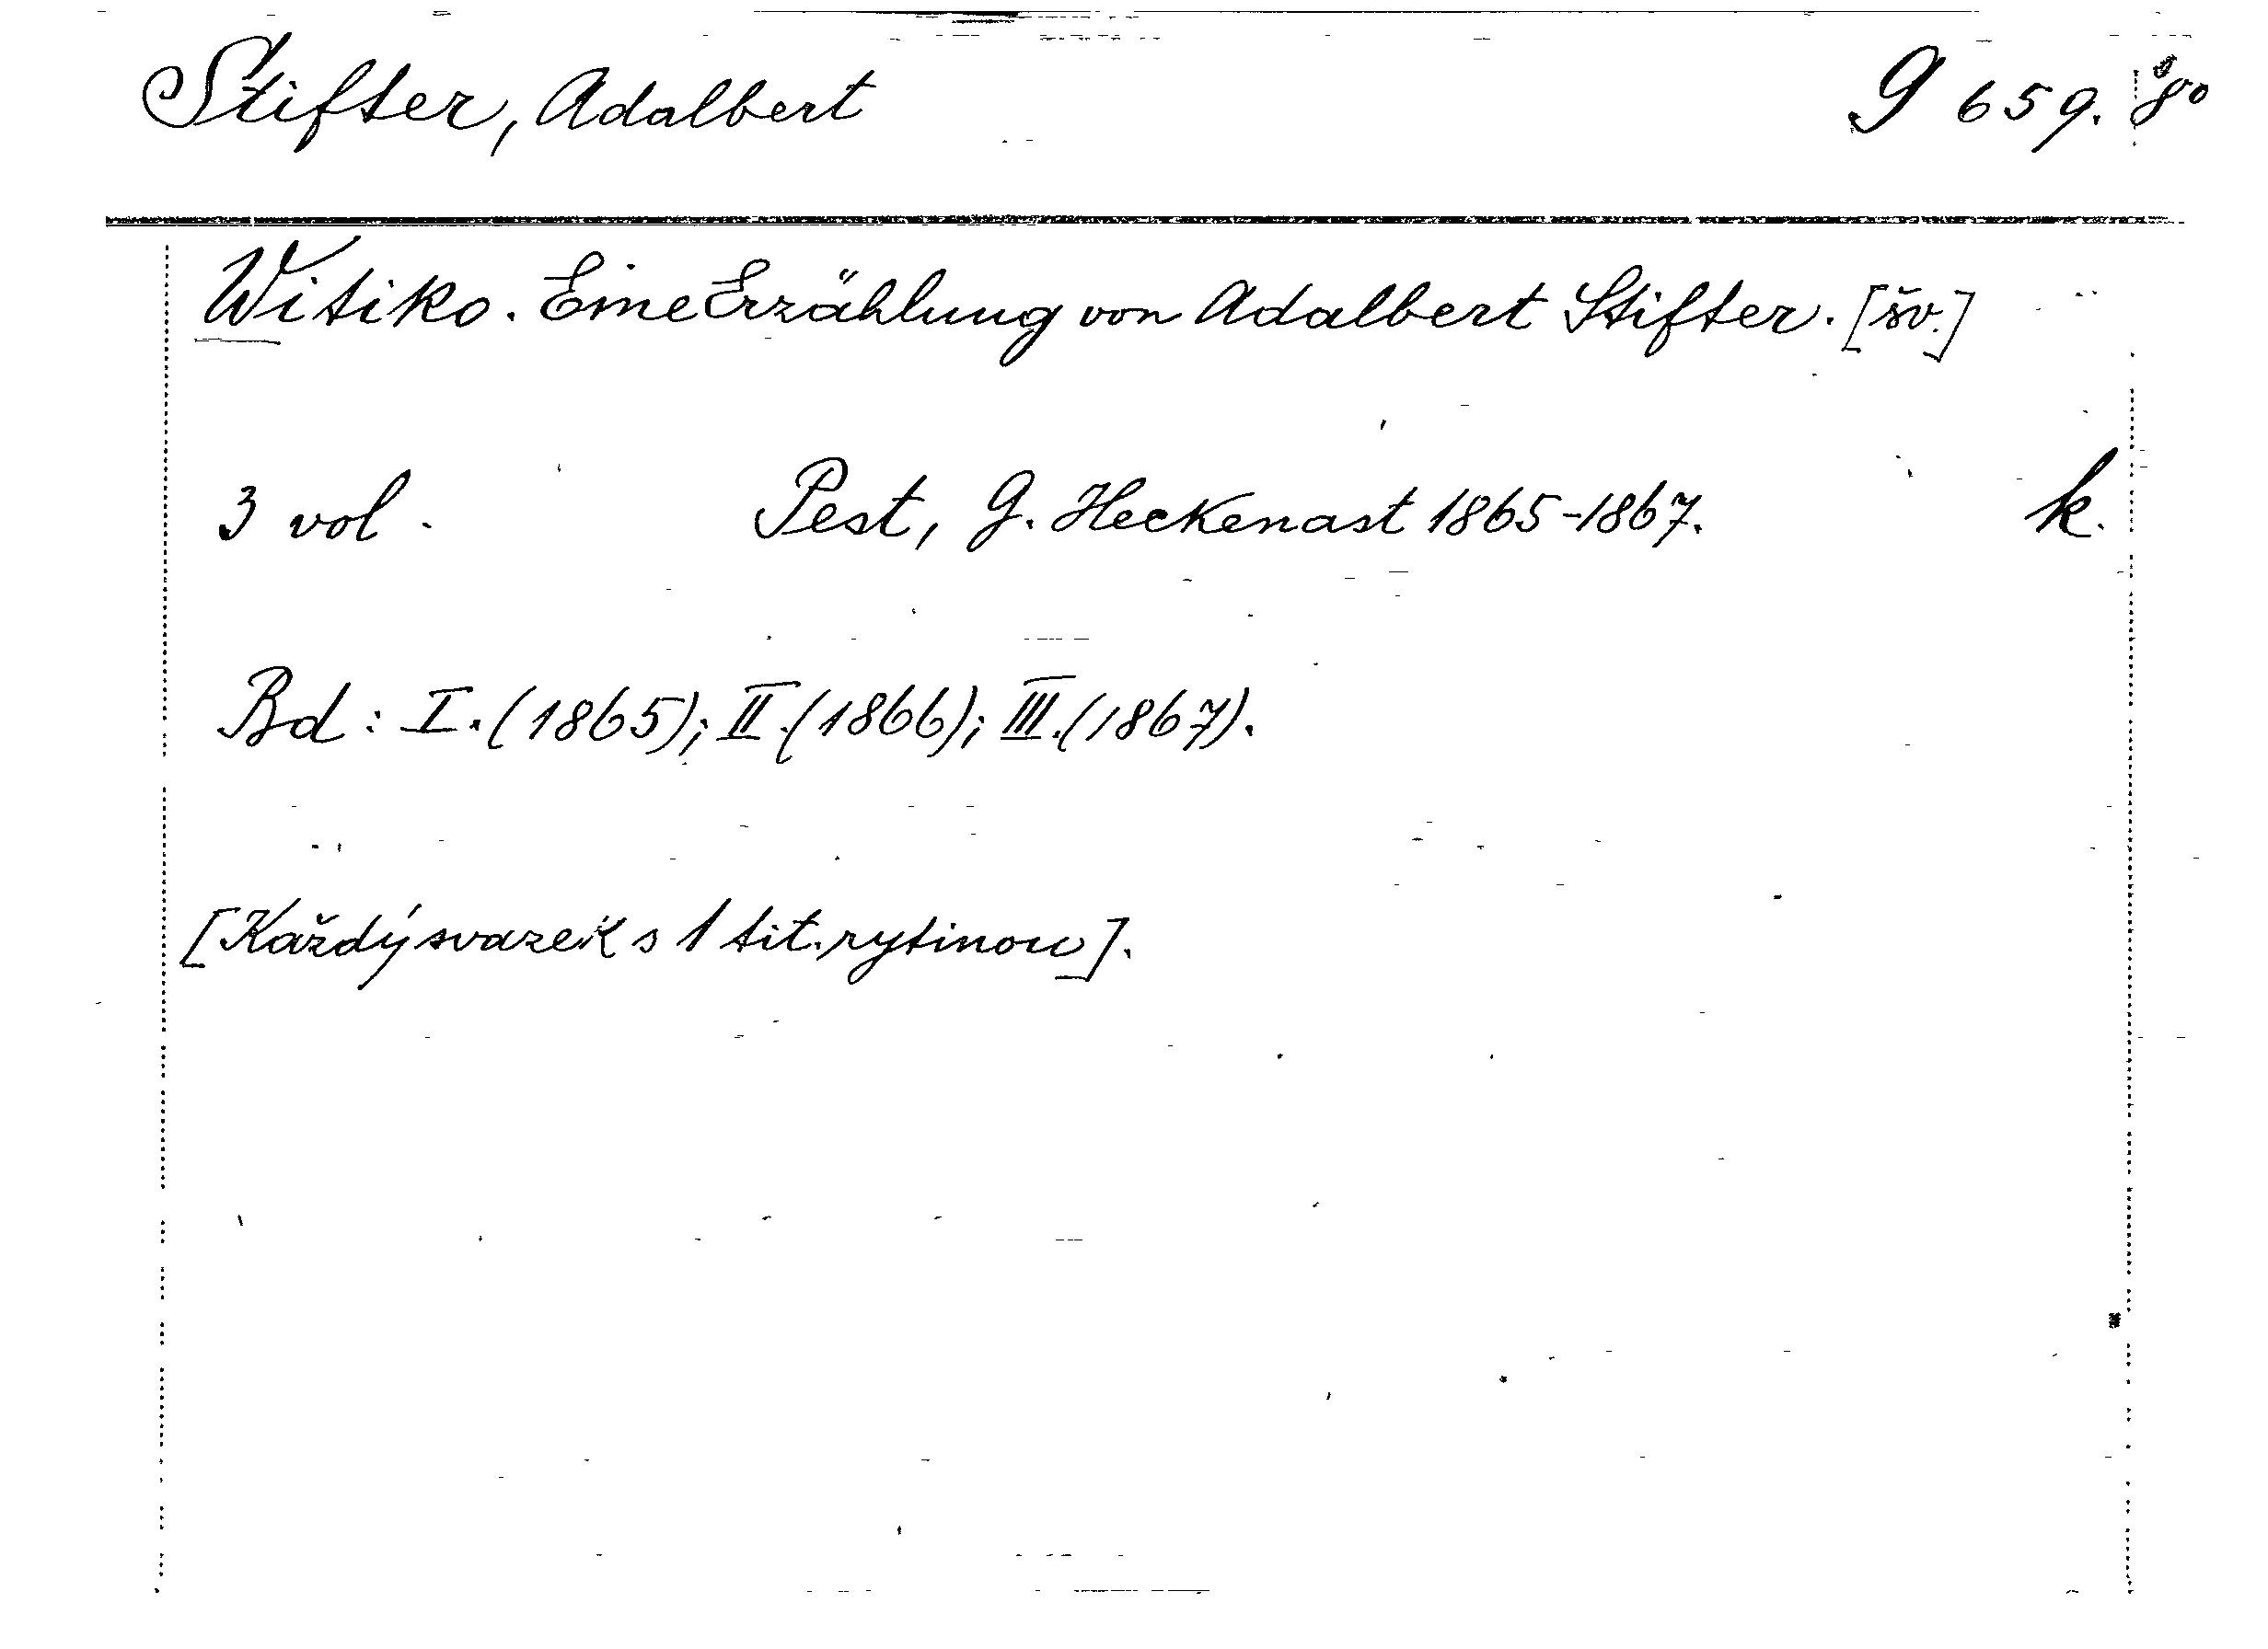 Stifter, Adalbert 9 659. 8°
Witiko. Eine Erzählung von Adalbert Stifter. [šv.]
3 vol. Pest, G. Heckenast 1865-1867. k.
Bd: I. (1865); II. (1866); III. (1867).
[Každý svazek s 1 tit. rytinou].